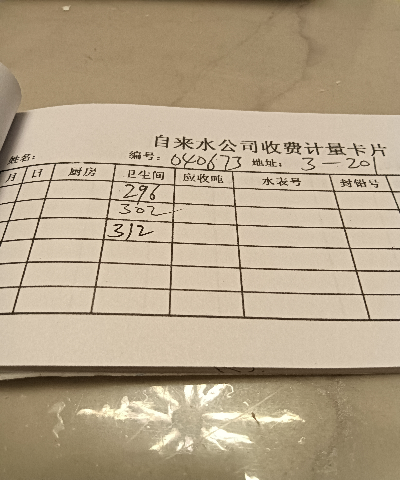 自来水公司收费计量卡片
姓名: 编号: 040673 地址: 3-201
月 日 厨房 卫生间 应收吨 水表号 封铅号
296
302
312